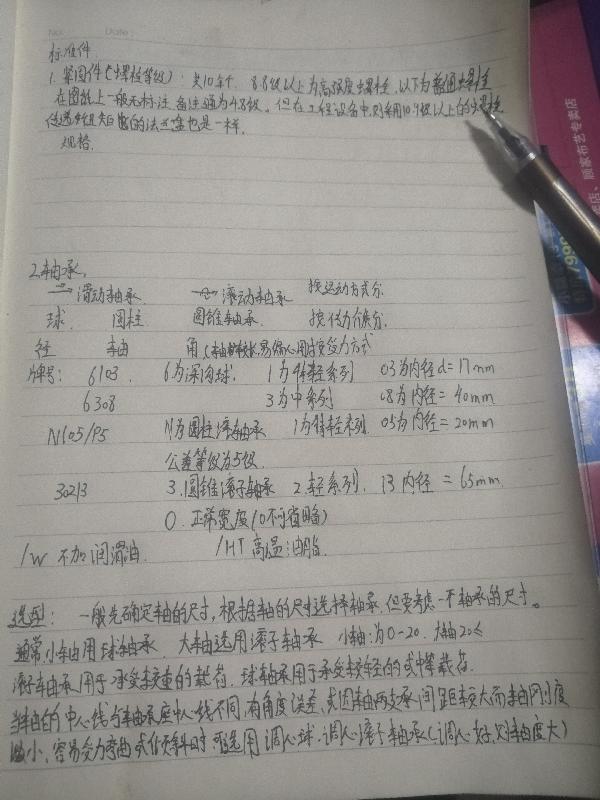 No.
Date:
标准件.
1. 紧固件(螺栓等级): 共10余个. 8.8级以上为高强度螺栓, 以下为普通螺栓
在图纸上一般无标注 备注通为4.8级. 但在工程设备中则采用10.9级以上的螺栓
的法兰盘也是一样.
规格.
2. 轴承.
滑动轴承. 滚动轴承 按运动方式分.
球. 圆柱. 圆锥轴承. 按传力介质分.
径 轴 角 受力方式
牌号: 6103. 6为深沟球. 1为特轻系列 03为内径d=17mm
6308 3为中系列 08为内径=40mm
N105/P5 N为圆柱滚轴承 1为特轻系列 05为内径=20mm
公差等级为5级.
30213 3.圆锥滚子轴承 2.轻系列. 13内径=65mm.
0. 正常宽度(0不可省略)
/W 不加润滑油. /HT 高温油脂.
选型: 一般先确定轴的尺寸, 根据轴的尺寸选择轴承. 但要考虑一下轴承的尺寸。
通常小轴用球轴承. 大轴选用滚子轴承 小轴:为0-20. 大轴20≤
滚子轴承用于承受较重的载荷. 球轴承用于承受较轻的或中等载荷.
当轴的中心线与轴承座中心线不同, 有角度误差, 或因轴两支承间距较大而轴刚度
小、容易受力弯曲或倾斜时 可选用 调心球. 调心滚子轴承(调心好,对轴度大)
顾家布艺专卖店